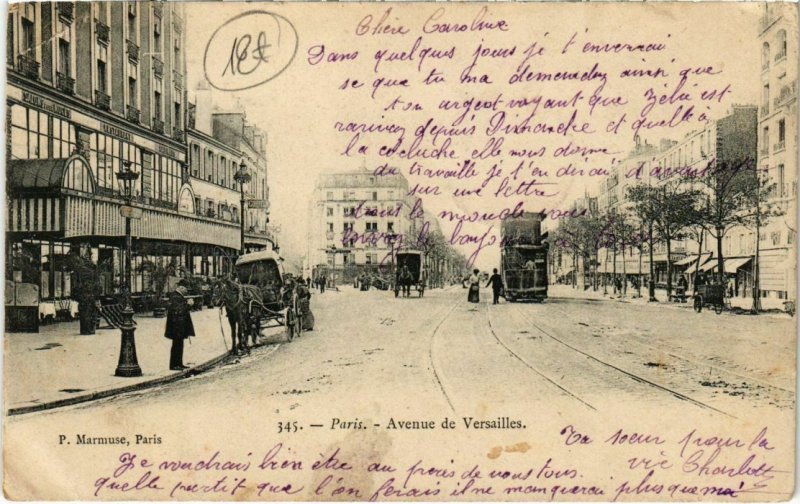 18e
Chère Caroline
Dans quelques jours je t'enverrai
se que tu ma demendez ainsi que
ton argent voyant que Zélie est
rarivez depuis Dimanche et quelle à
la coluche elle nous donne
du travaille je t'en dirai d'avantage
sur une lettre
tous le monde vous
envoy le bonjour
345. — Paris. - Avenue de Versailles.
P. Marmuse, Paris
Ta soeur pour la
vie Charlotte
Je voudrais bien être au près de vous tous.
quelle partit que l'on ferais il ne manquerai plus que ma!